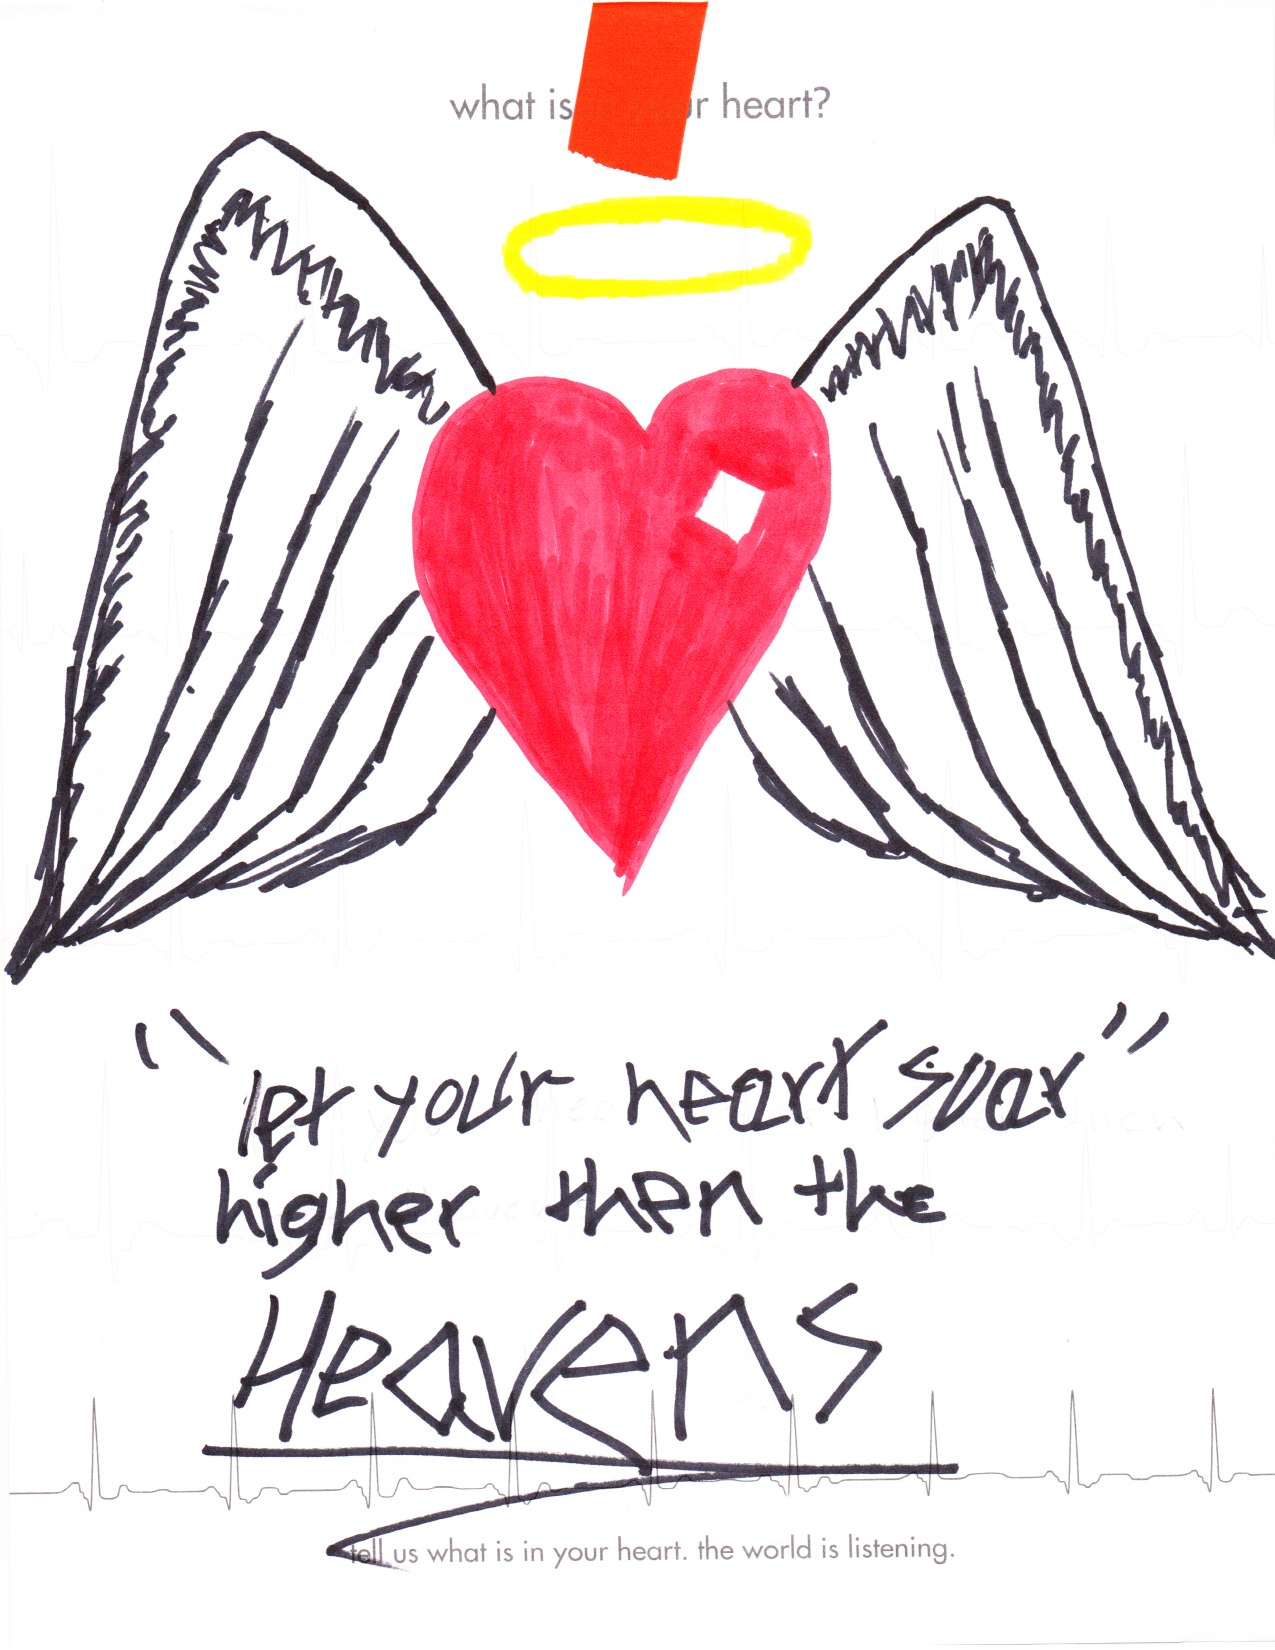 what is r heart?
"let your heart soar"
higher then the
Heavens
tell us what is in your heart. the world is listening.